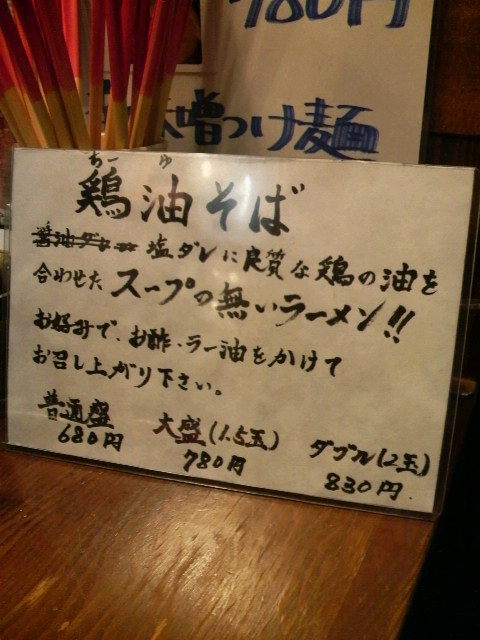 780円
味噌つけ麺
ちー ゆ
鶏油そば
醤油ダレ 塩ダレに良質な鶏の油を
合わせたスープの無いラーメン!!
お好みで、お酢・ラー油をかけて
お召し上がり下さい。
普通盛 大盛(1.5玉) ダブル(2玉)
680円 780円 830円